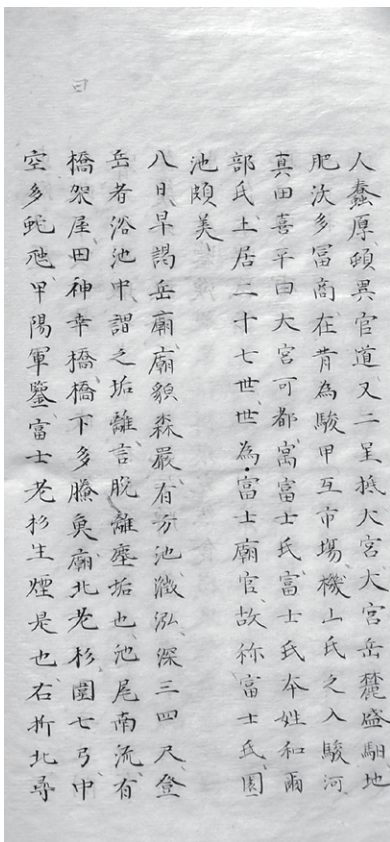 人蠢厚頓異官道又二里抵大宮大宮岳麓盛駔地
肥沃多冨商在昔為駿甲互市場機山氏之入駿河
真田喜平曰大宮可都寓富士氏富士氏本姓和爾
部氏土居二十七世世為富士廟官故称富士氏園
池頗美
八日早謁岳廟廟貌森嚴有方池澂泓深三四尺登
岳者浴池中謂之垢離言脱離塵垢也池尾南流有
橋架屋田神幸橋橋下多賸魚廟北老杉圍七弓中
空多蛇虺甲陽軍鑒富士老杉生煙是也右折北尋